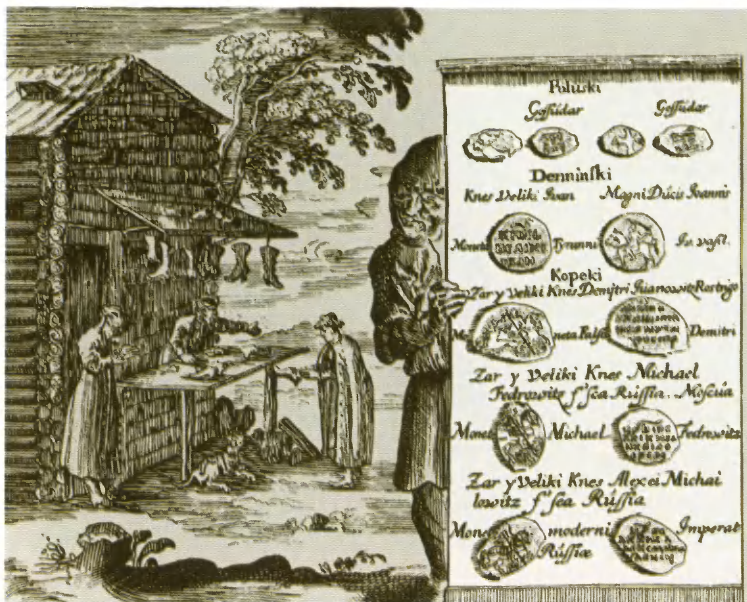 Poluski
Gossudar Gossudar
Denninski
Knes Veliki Ivan Magni Ducis Ioannis
Moneta Tyranni Iv. vasil.
Kopeki
Zar y Veliki Knes Demitri Iuanowitz Rostrigo
Mo neta Falsi Demitri
Zar y Veliki Knes Michael
Fedrowitz f'sea Russia. Moscua
Monet Michael Fedrowitz
Zar y Veliki Knes Alexei Michai
lowitz f'sea Russia
Mon moderni Imperat
Russiæ